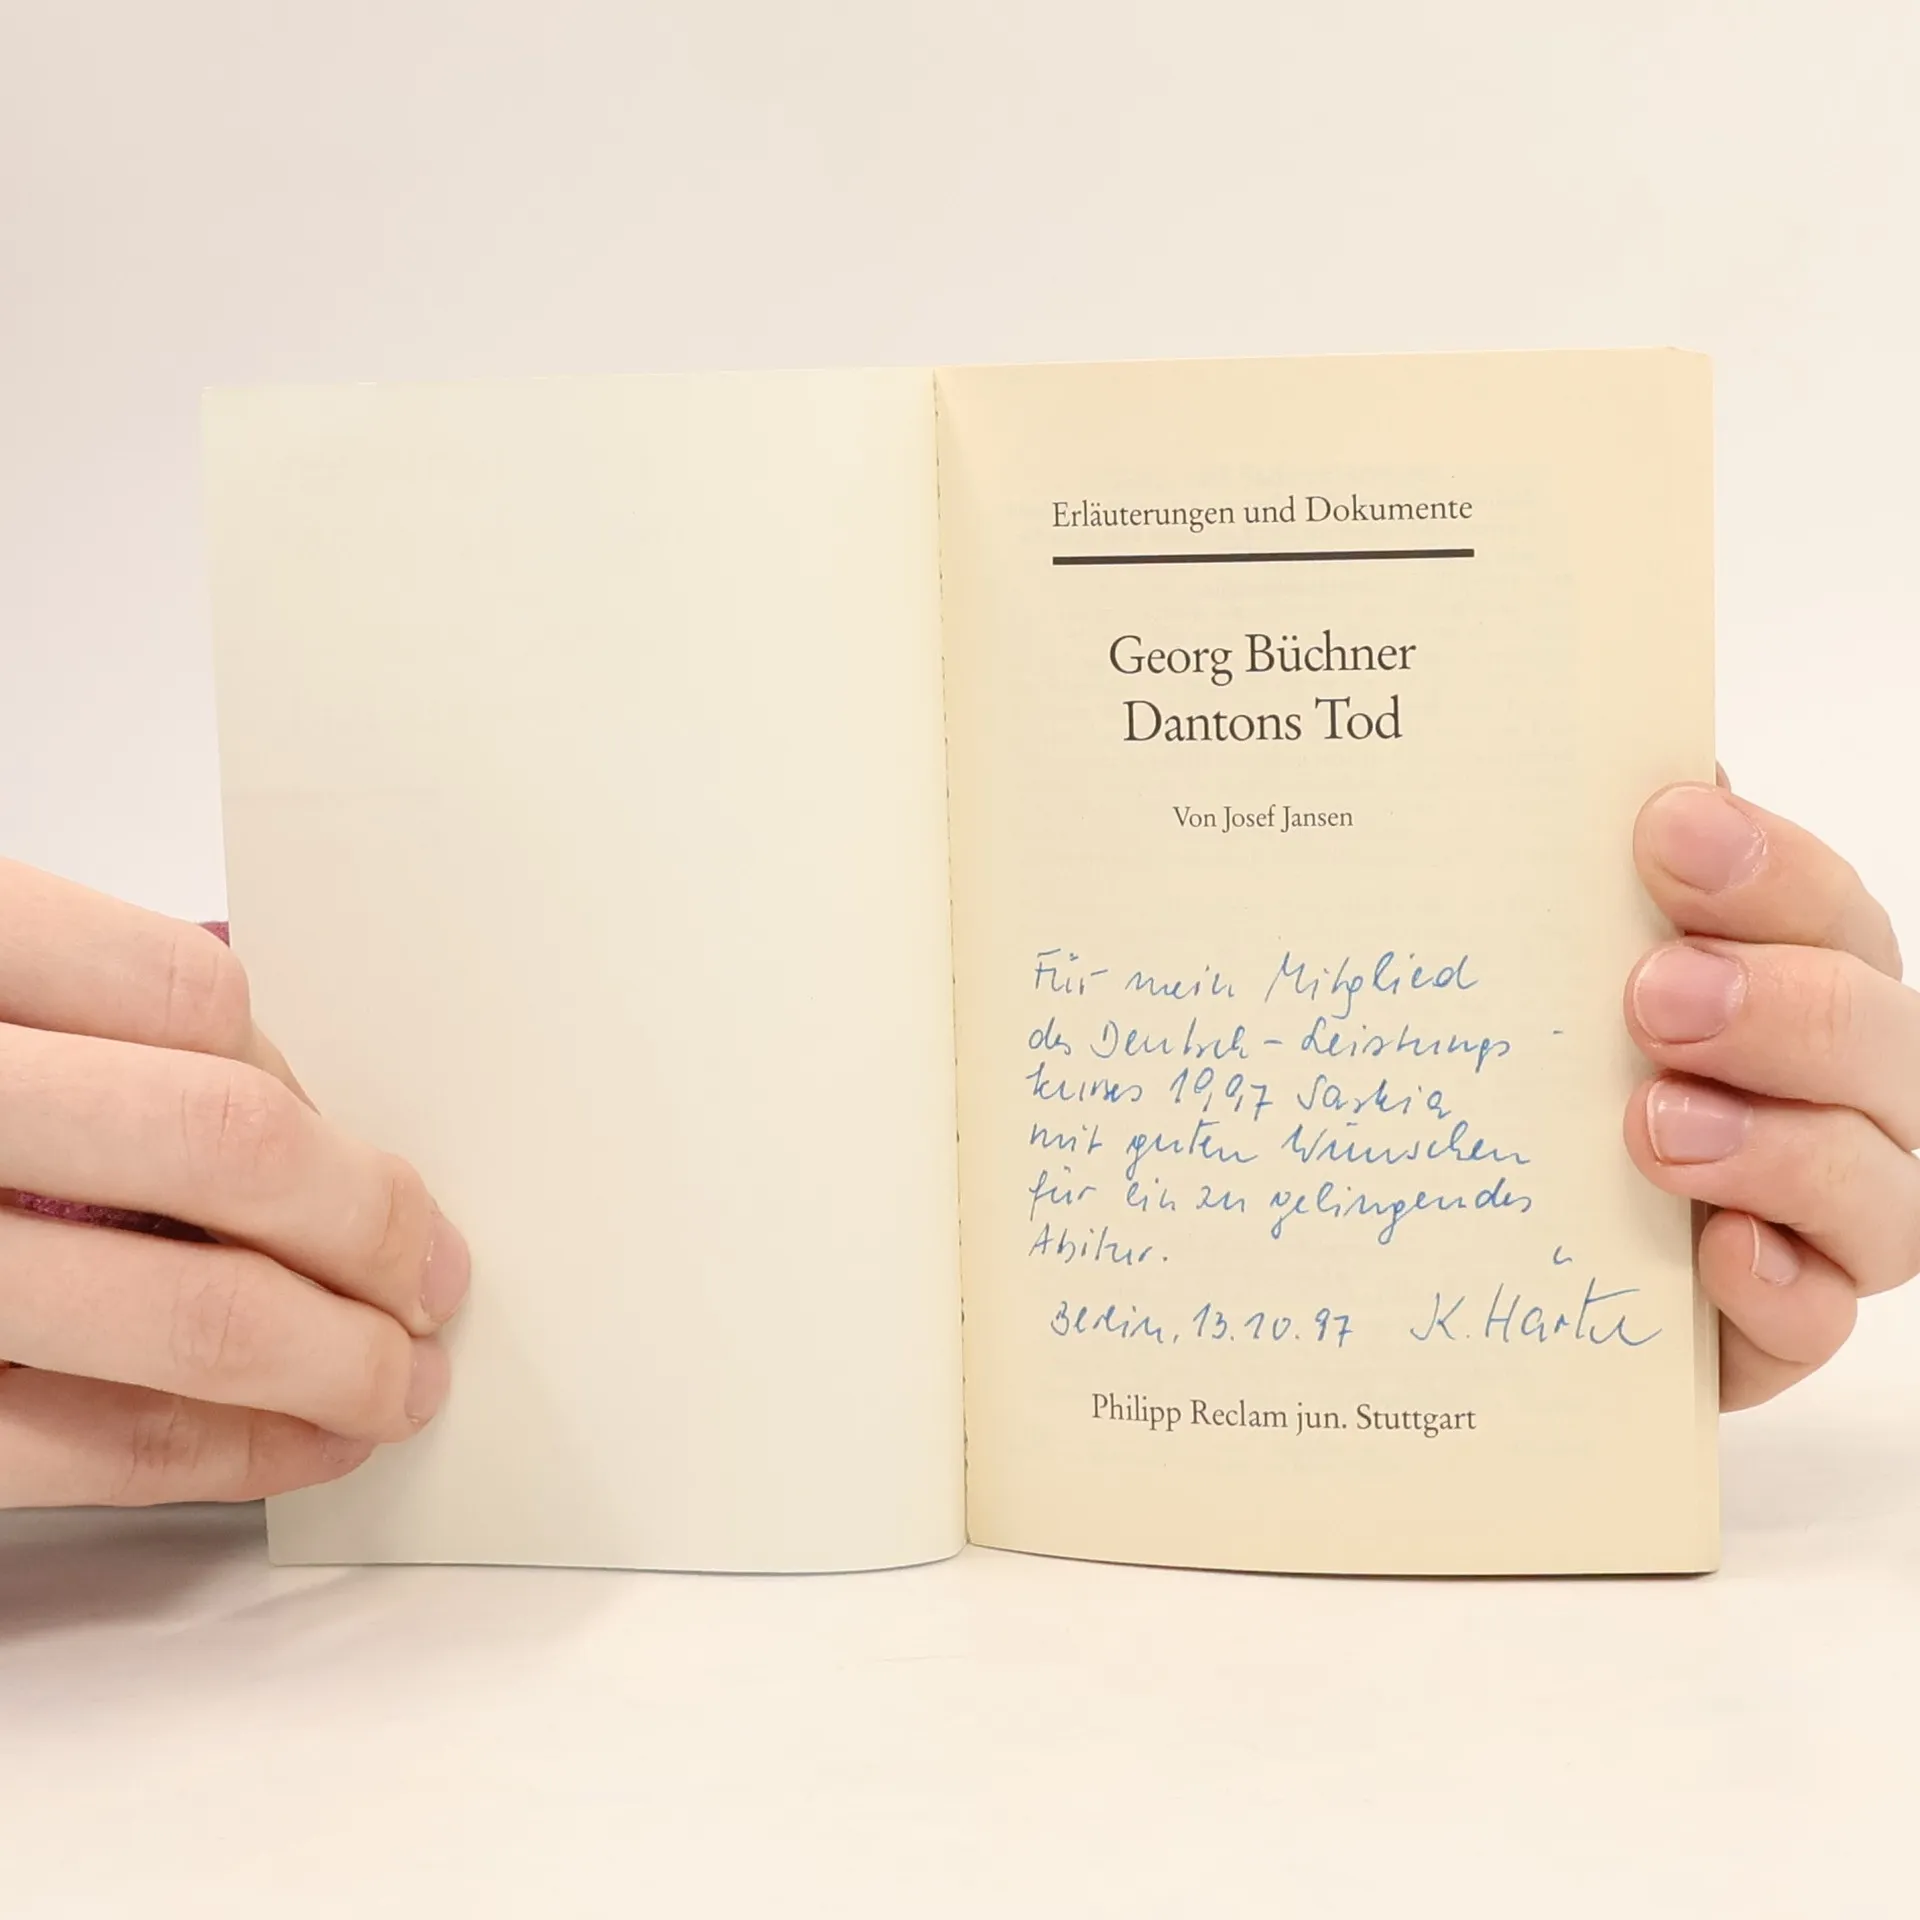 Erläuterungen und Dokumente
Georg Büchner
Dantons Tod
Von Josef Jansen
Für mein Mitglied
des Deutsch-Leistungs-
kurses 1997 Saskia
mit guten Wünschen
für ein zu gelingendes
Abitur.
Berlin, 13.10.97 K. Härtel
Philipp Reclam jun. Stuttgart